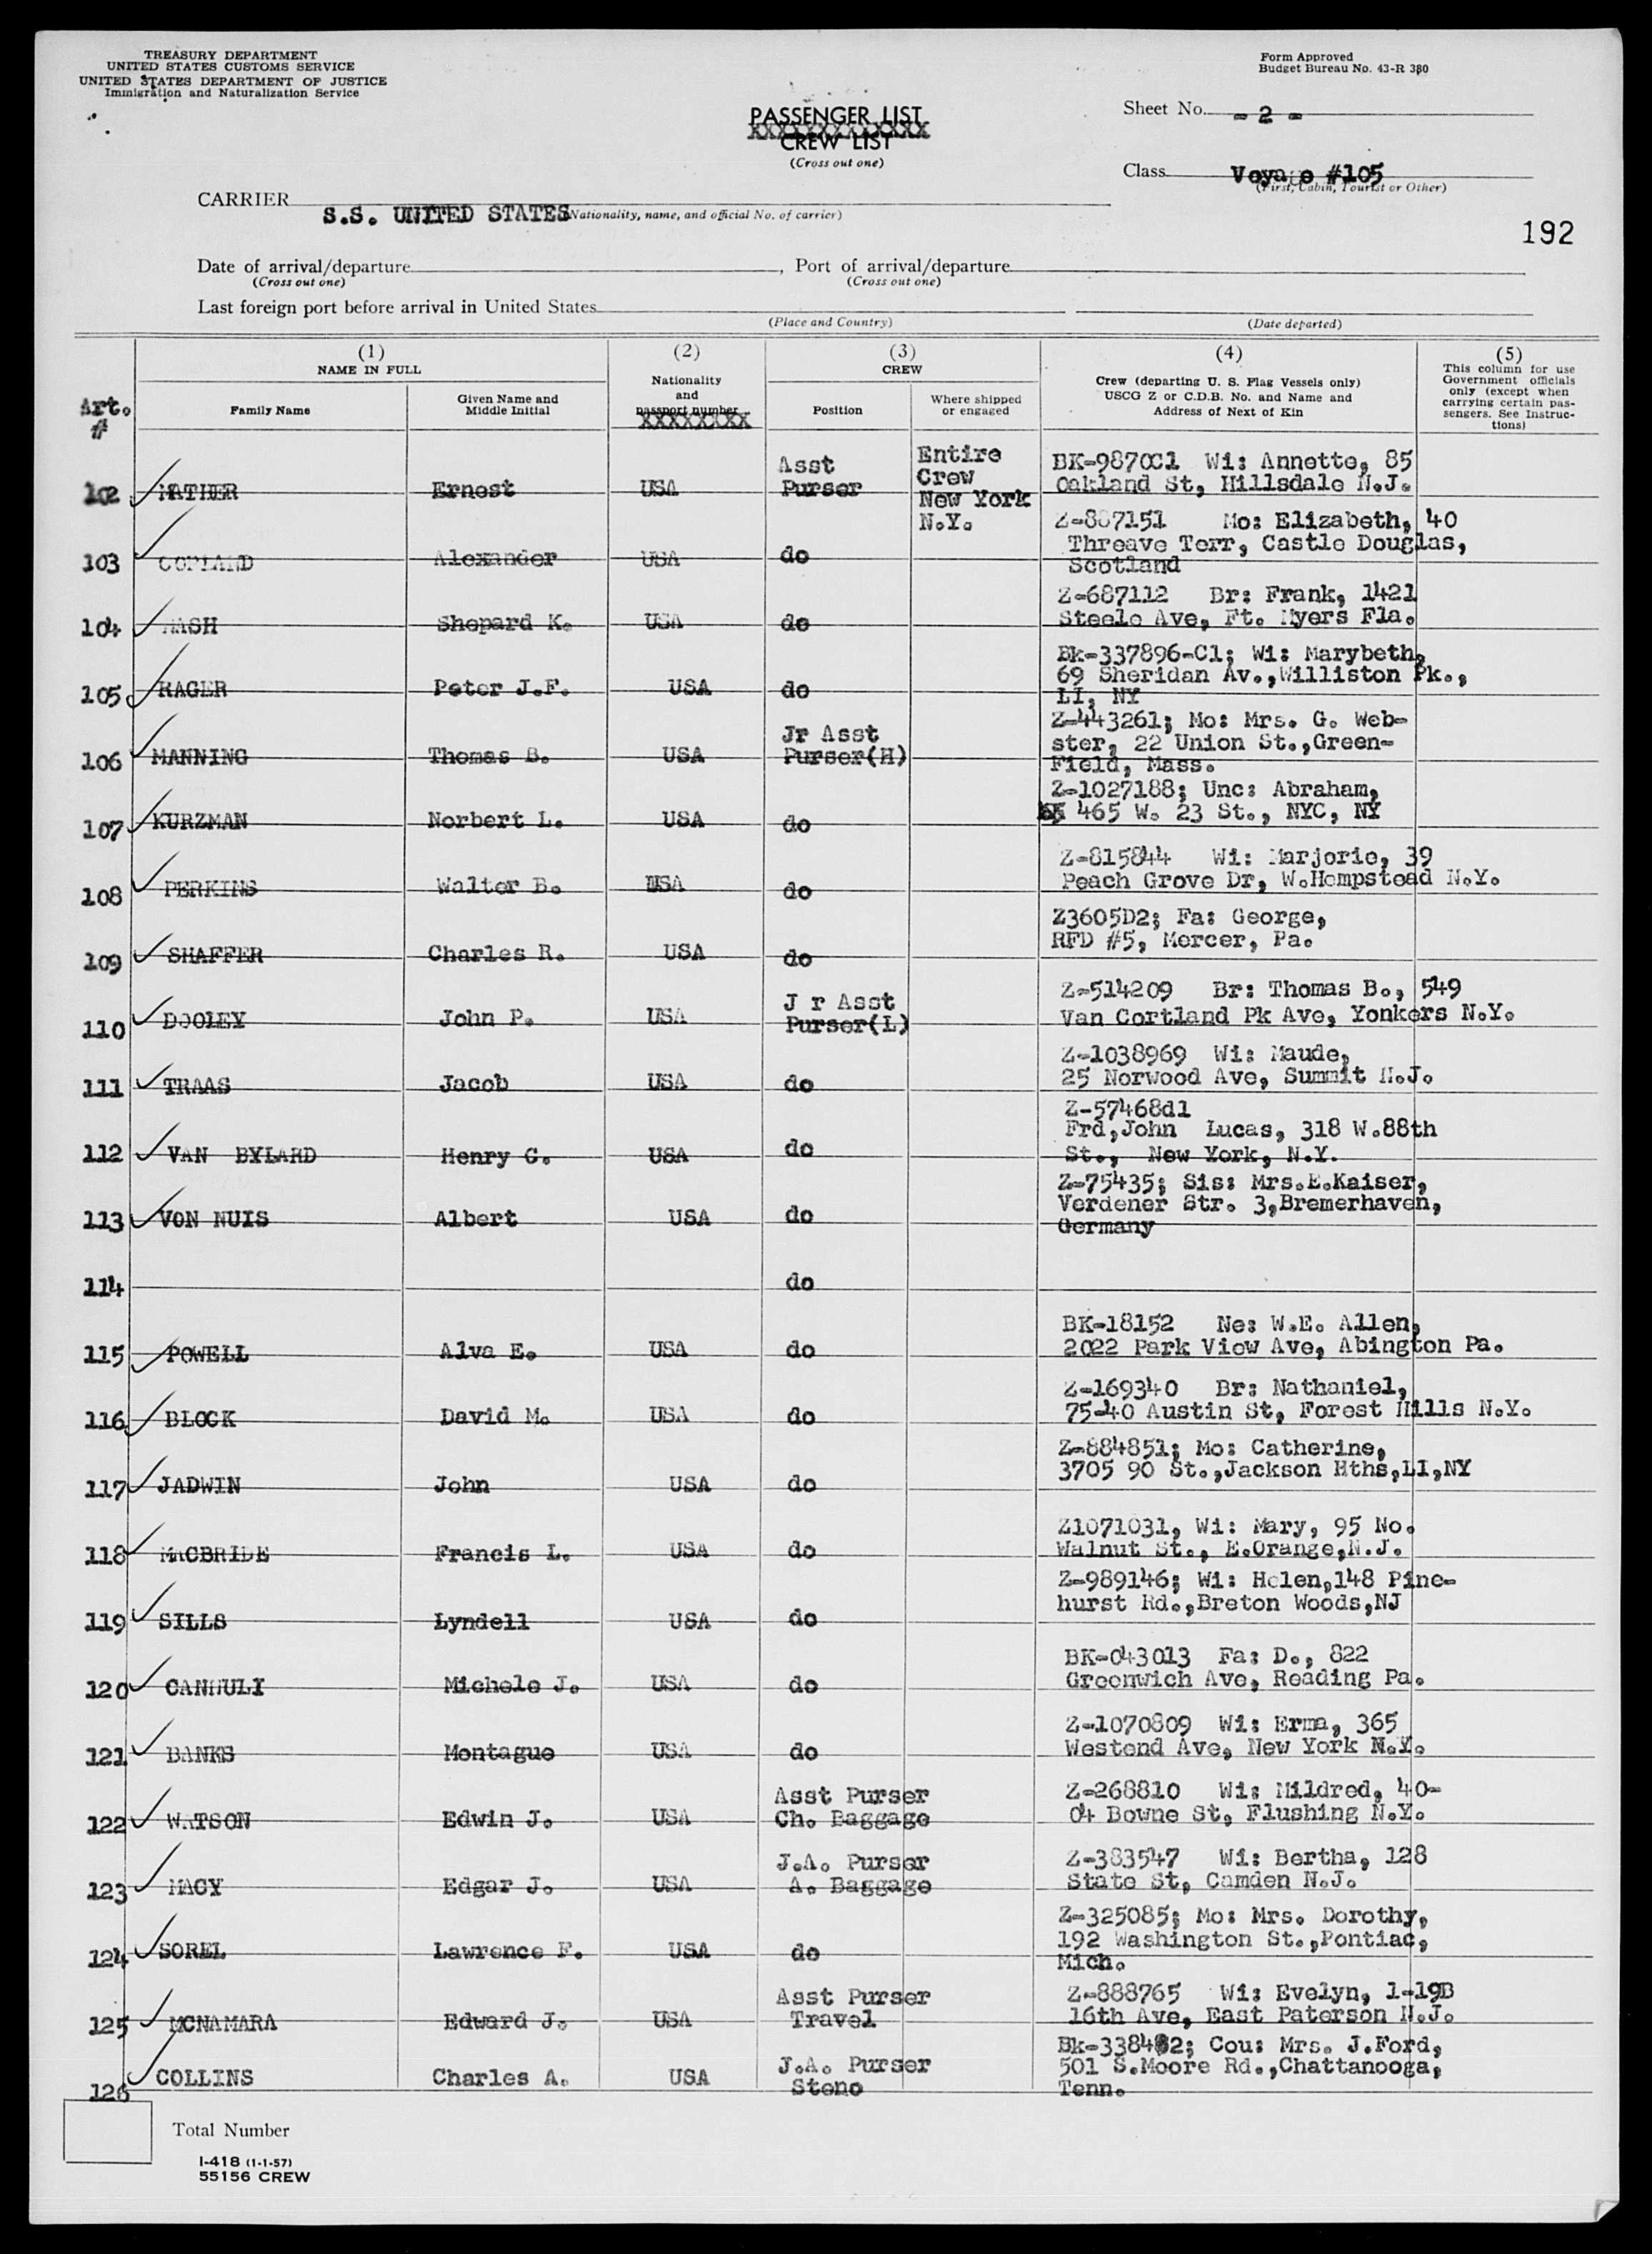 TREASURY DEPARTMENT
UNITED STATES CUSTOMS SERVICE
UNITED STATES DEPARTMENT OF JUSTICE
Immigration and Naturalization Service
Form Approved
Budget Bureau No. 43-R 380
PASSENGER LIST
XXXXXXXXXXXXX
CREW LIST
(Cross out one)
Sheet No. - 2 -
Class Voyage #105
(First, Cabin, Tourist or Other)
CARRIER S.S. UNITED STATES
(Nationality, name, and official No. of carrier)
192
Date of arrival/departure , Port of arrival/departure
(Cross out one) (Cross out one)
Last foreign port before arrival in United States
(Place and Country) (Date departed)
(1) (2) (3) (4) (5)
NAME IN FULL
Family Name
Given Name and Middle Initial
Nationality and passport number
XXXXXXXX
CREW
Position
Where shipped or engaged
Crew (departing U. S. Flag Vessels only)
USCG Z or C.D.B. No. and Name and
Address of Next of Kin
This column for use
Government officials
only (except when
carrying certain pas-
sengers. See Instruc-
tions)
Art.
#
102 MATHER Ernest USA Asst Purser Entire Crew New York N.Y. BK-987001 Wi: Annette, 85
Oakland St, Hillsdale N.J.
103 COPLAND Alexander USA do Z-887151 Mo: Elizabeth, 40
Threave Terr, Castle Douglas,
Scotland
104 Shepard K. USA do Z-687112 Br: Frank, 1421
Steele Ave, Ft. Myers Fla.
105 RAGER Peter J.F. USA do Bk-337896-C1; Wi: Marybeth,
69 Sheridan Av.,Williston Pk.,
LI, NY
106 MANNING Thomas B. USA Jr Asst Purser(H) Z-443261; Mo: Mrs. G. Web-
ster, 22 Union St.,Green-
Field, Mass.
107 KURZMAN Norbert L. USA do Z-1027188; Unc: Abraham,
465 W. 23 St., NYC, NY
108 PERKINS Walter B. USA do Z-815844 Wi: Marjorie, 39
Peach Grove Dr, W.Hempstead N.Y.
109 SHAFFER Charles R. USA do Z3605D2; Fa: George,
RFD #5, Mercer, Pa.
110 DOOLEY John P. USA J r Asst Purser(L) Z-514209 Br: Thomas B., 549
Van Cortland Pk Ave, Yonkers N.Y.
111 TRAAS Jacob USA do Z-1038969 Wi: Maude,
25 Norwood Ave, Summit N.J.
112 VAN BYLARD Henry G. USA do Z-57468d1
Frd,John Lucas, 318 W.88th
St., New York, N.Y.
113 VON NUIS Albert USA do Z-75435; Sis: Mrs.E.Kaiser,
Verdener Str. 3,Bremerhaven,
Germany
114 do
115 POWELL Alva E. USA do BK-18152 Ne: W.E. Allen,
2022 Park View Ave, Abington Pa.
116 BLOCK David M. USA do Z-169340 Br: Nathaniel,
75-40 Austin St, Forest Hills N.Y.
117 JADWIN John USA do Z-884851; Mo: Catherine,
3705 90 St.,Jackson Hths,LI,NY
118 MACBRIDE Francis L. USA do Z1071031, Wi: Mary, 95 No.
Walnut St., E.Orange,N.J.
119 SILLS Lyndell USA do Z-989146; Wi: Helen,148 Pine-
hurst Rd.,Breton Woods,NJ
120 Michele J. USA do BK-043013 Fa: D., 822
Greenwich Ave, Reading Pa.
121 BANKS Montague USA do Z-1070809 Wi: Erma, 365
Westend Ave, New York N.Y.
122 WATSON Edwin J. USA Asst Purser Ch. Baggage Z-268810 Wi: Mildred, 40-
04 Bowne St, Flushing N.Y.
123 MACY Edgar J. USA J.A. Purser A. Baggage Z-383547 Wi: Bertha, 128
State St, Camden N.J.
124 SOREL Lawrence F. USA do Z-325085; Mo: Mrs. Dorothy,
192 Washington St.,Pontiac,
Mich.
125 MCNAMARA Edward J. USA Asst Purser Travel Z-888765 Wi: Evelyn, 1-19B
16th Ave, East Paterson N.J.
126 COLLINS Charles A. USA J.A. Purser Steno Cou: Mrs. J.Ford,
501 S.Moore Rd.,Chattanooga,
Tenn.
Total Number
I-418 (1-1-57)
55156 CREW